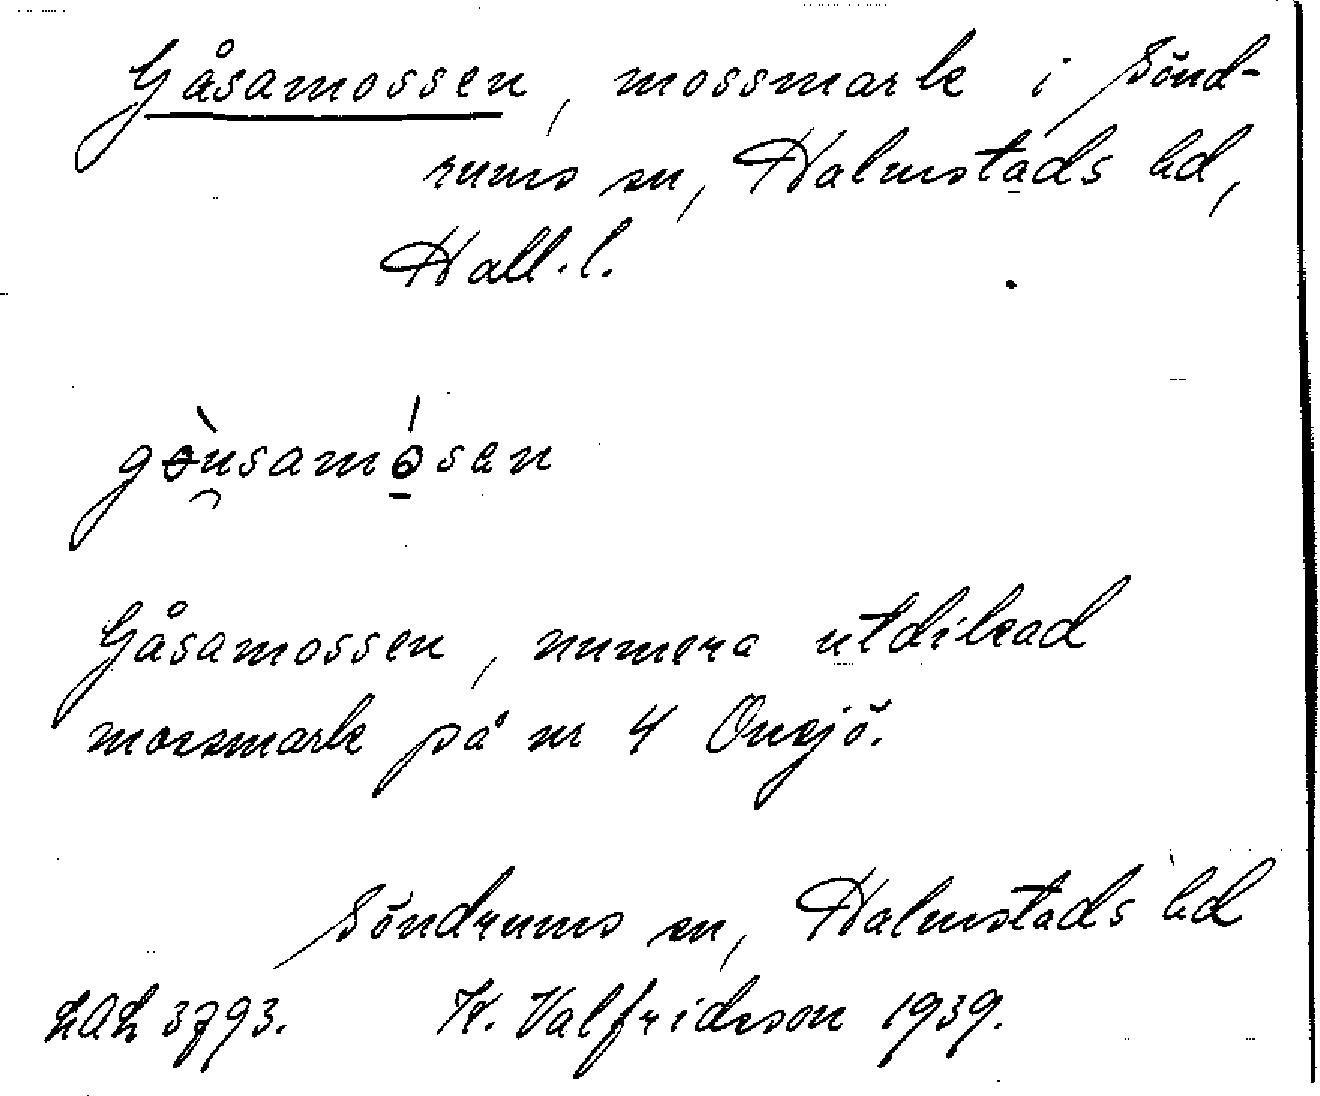 Gåsamossen, mossmark i Sönd-
rums sn, Halmstads hd,
Hall. l.
gɵ̀u̯samó̱sen
Gåsamossen, numera utdikad
mossmark på nr 4 Onsjö.
Söndrums sn, Halmstads hd
LAL 3793. W. Valfridsson 1939.